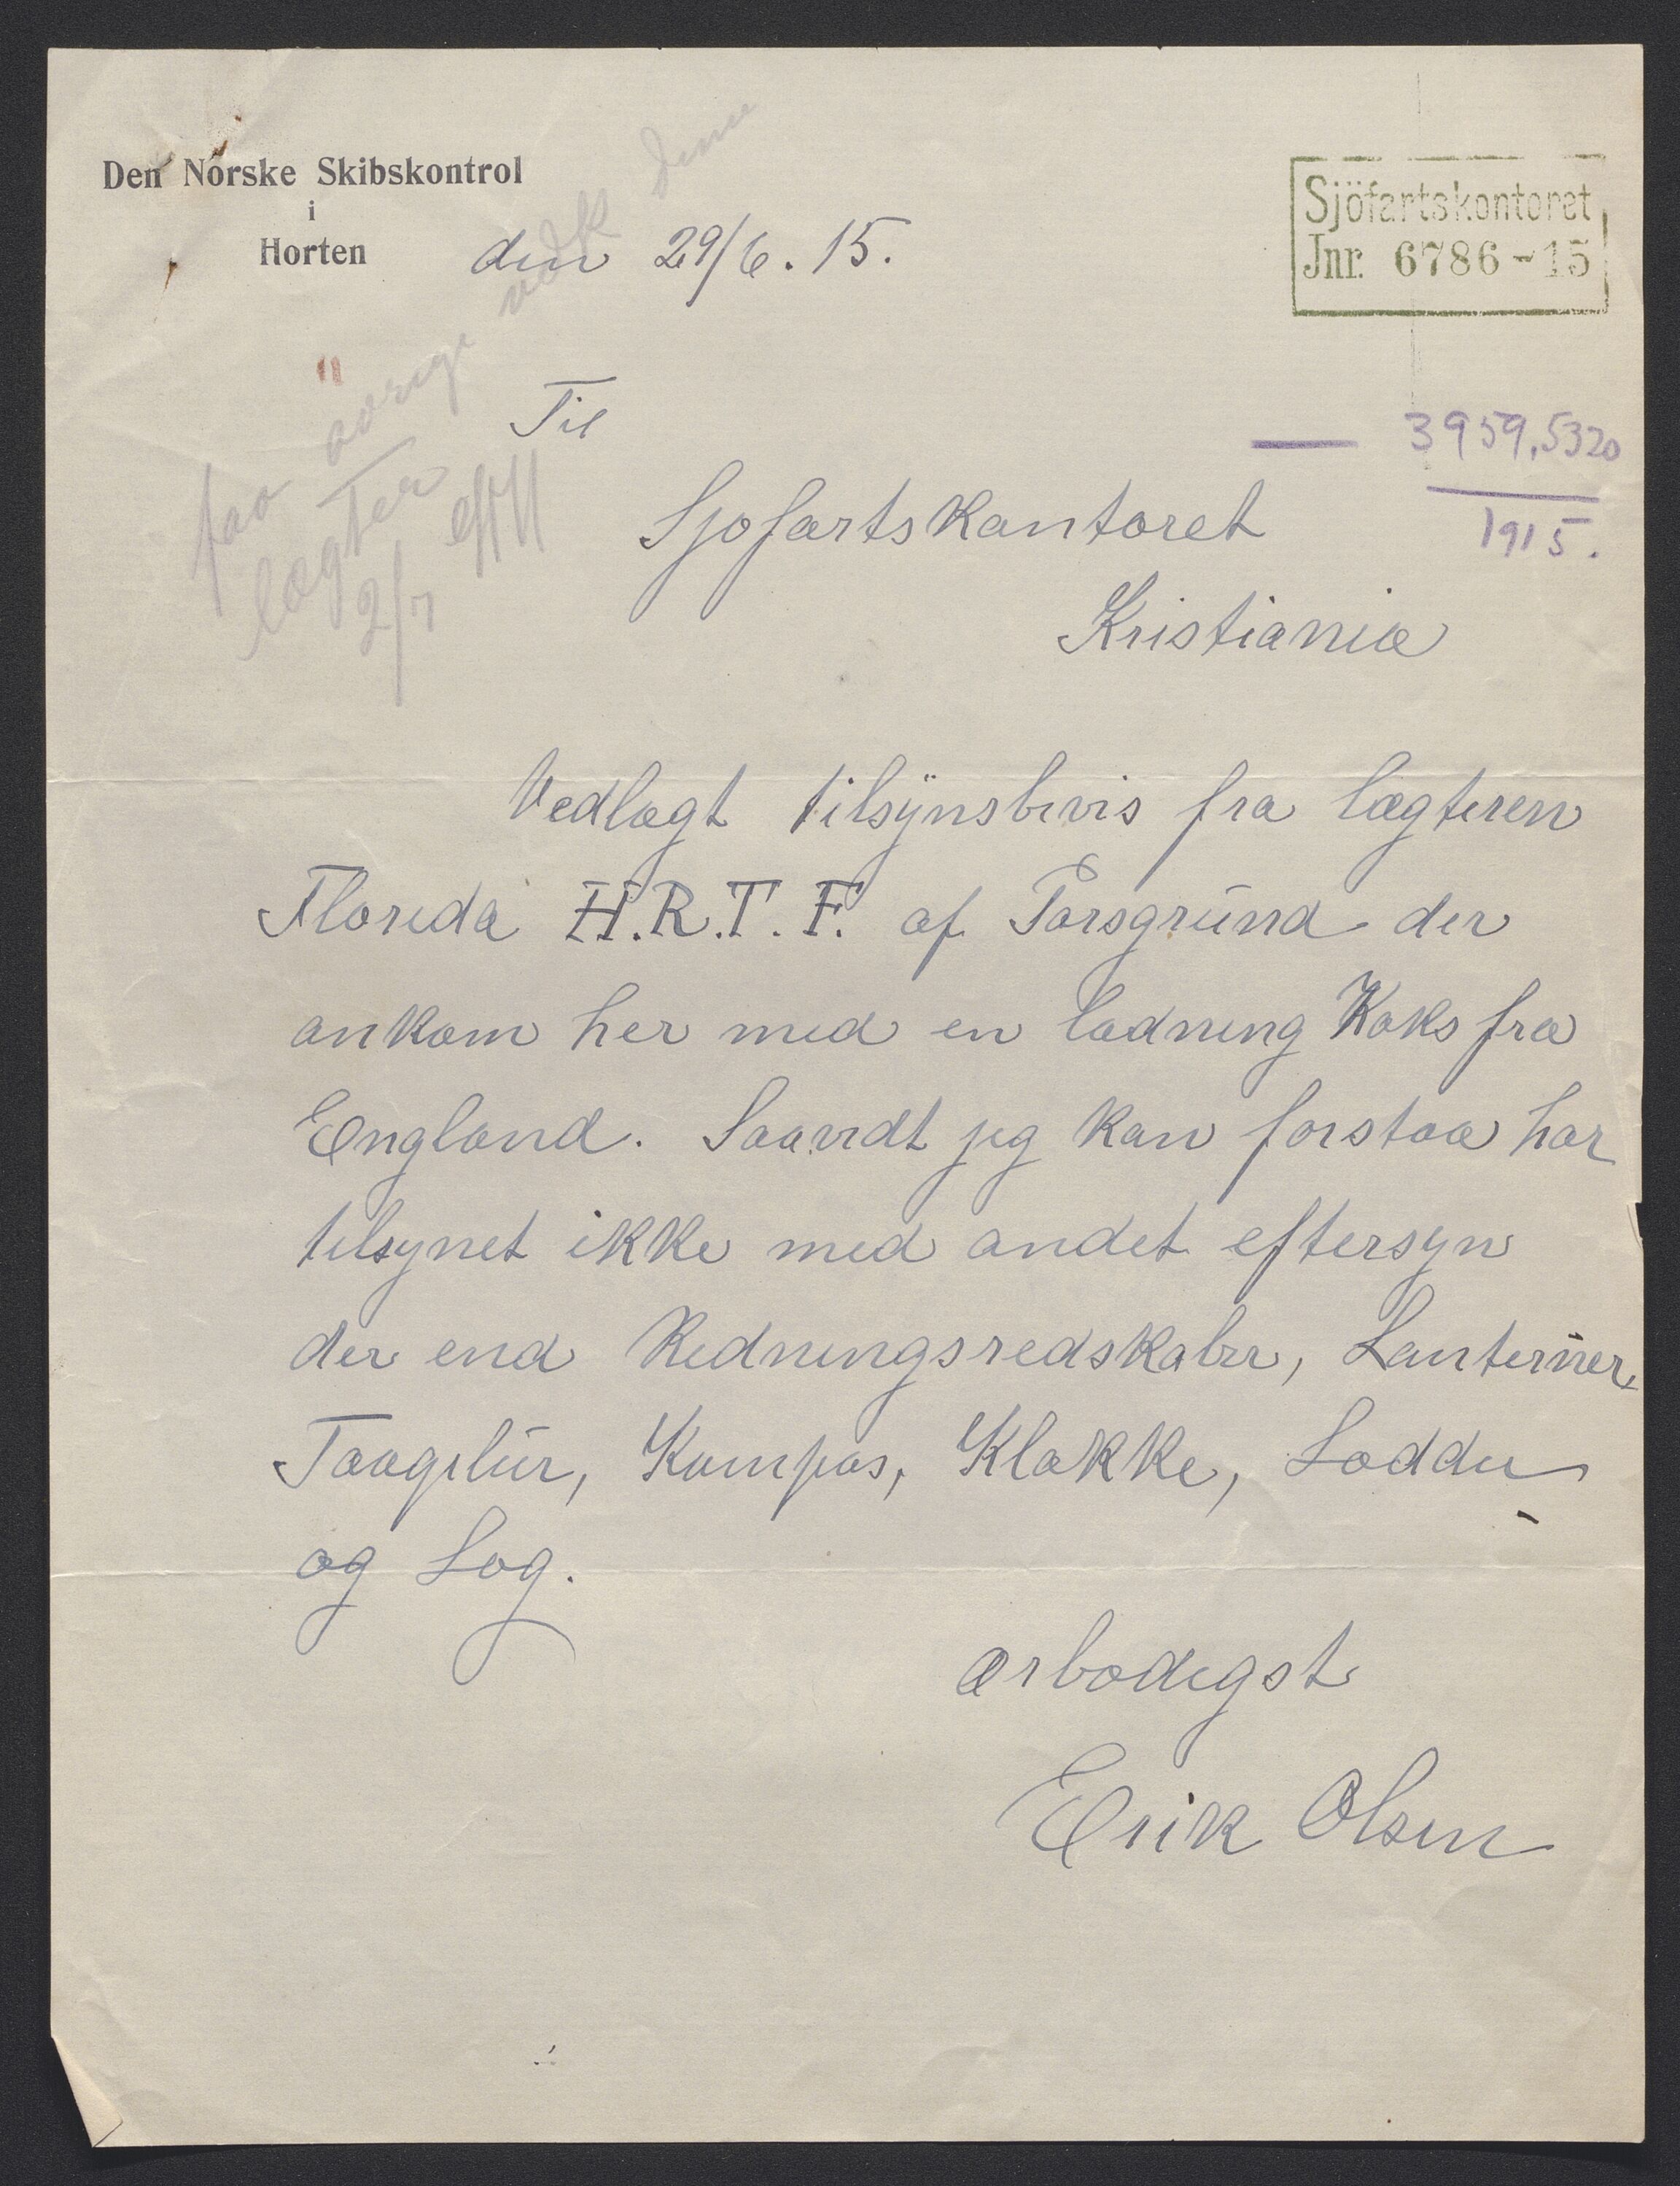 Den Norske Skibskontrol
i
Horten den 29/6. 15.
Sjöfartskontoret
Jnr. 6786-15
3959,5320
1915.
paa øvrige vedk denne
lægter
2/7
Til
Sjofartskontoret
Kristiania
Vedlagt tilsÿnsbevis fra lægteren
Florida H.R.T.F. af Porsgrund der
ankom her med en ladning Koks fra
England. Saavidt jeg kan forstaa har
tilsynet ikke med andet eftersyn
der end Redningsredskaber, Lanterner,
Taagelur, Kompas, Klokke, Lodder
og Log.
ærbødigst
Erik Olsen